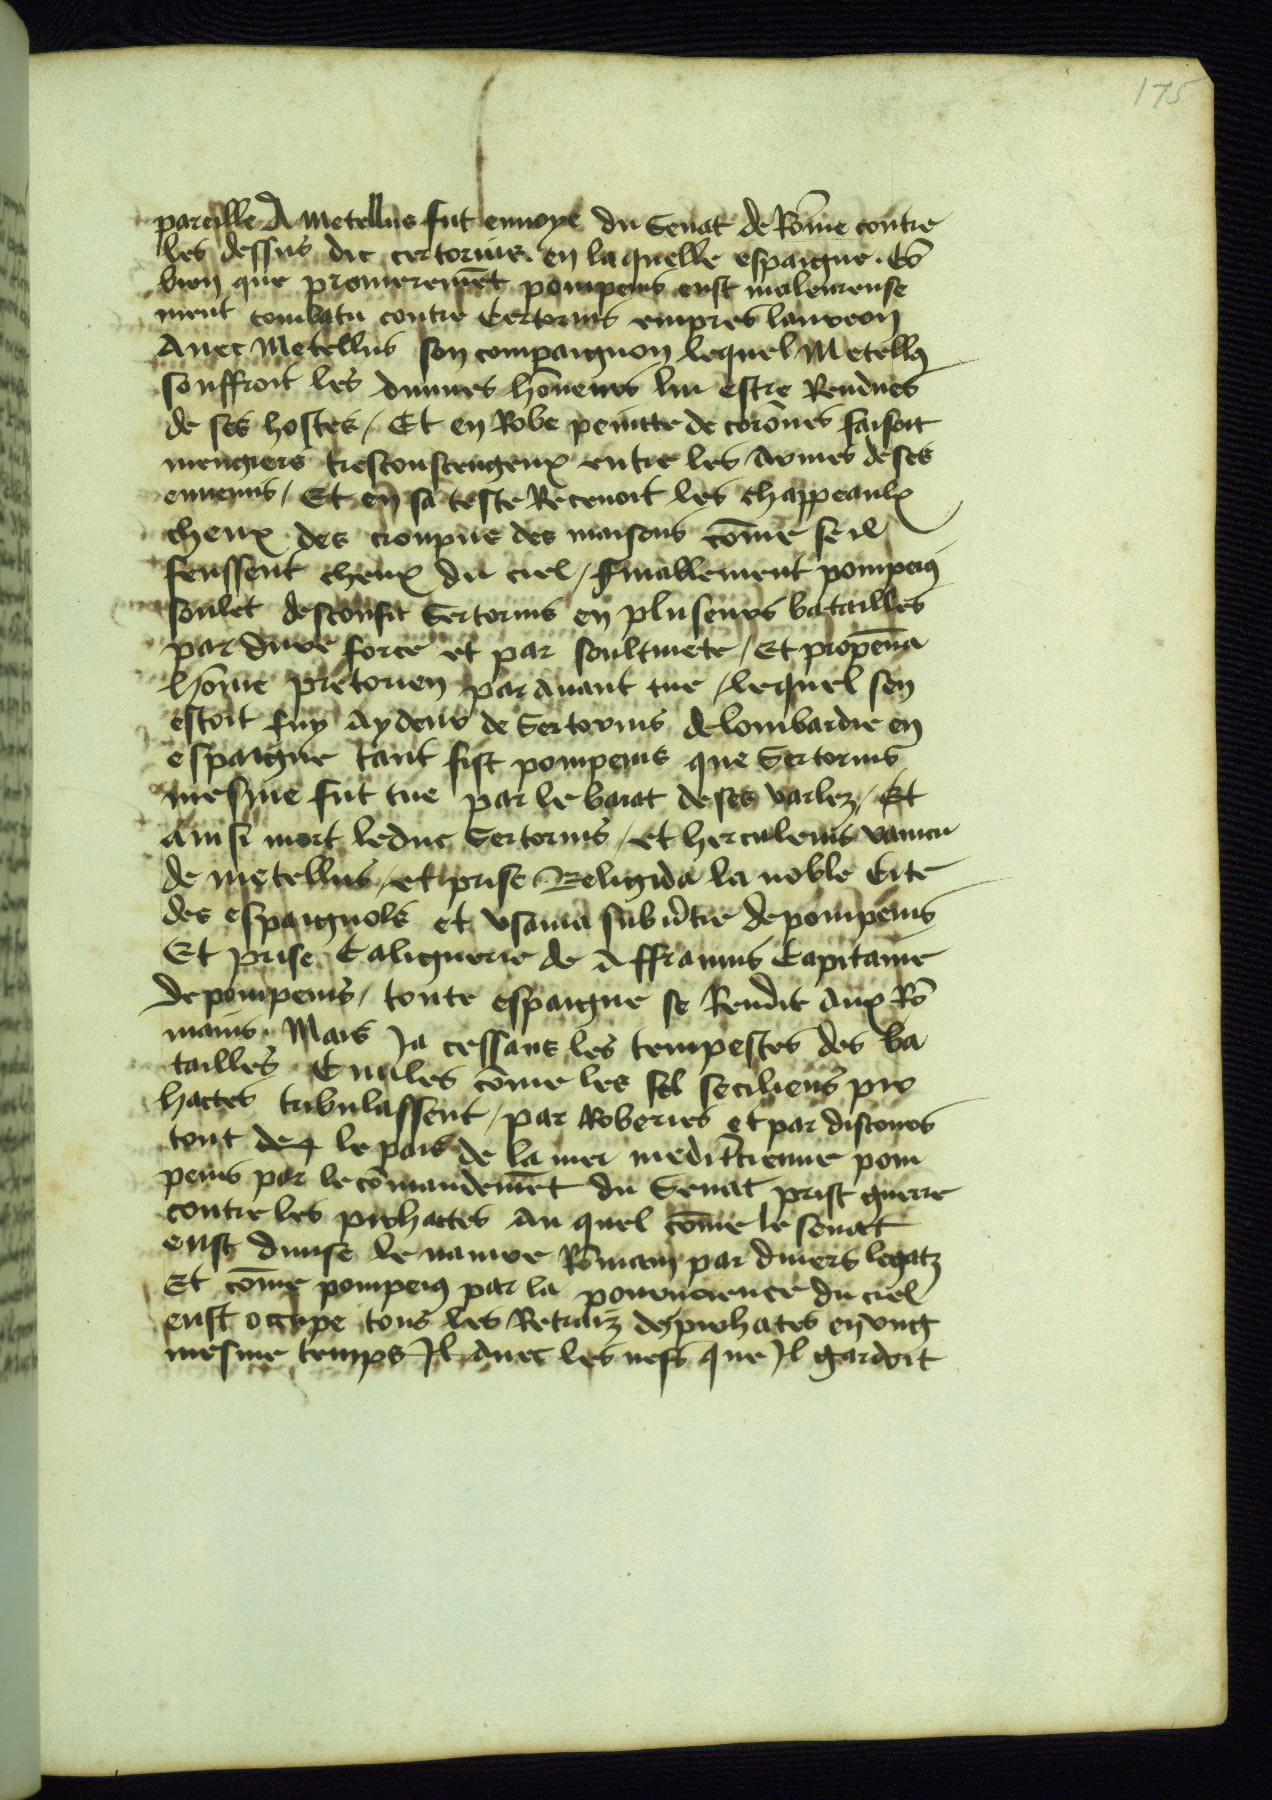 175
pareille A Metellus fut enuoye du Senat de Rōme contre
les dessus dit certorius en laquelle espaigne. Et
bien que premieremēt pompeius eust maleureuse
ment combatu contre Certorius empres laureon
Auec Metellus son compaignon lequel Metellꝰ
souffroit les diuines hōneurs lui estre Rendues
de ses hostes / Et en Robe peinte de corōnes faisoit
mengiers entre les Armes de ses
ennemis / Et en sa teste Receuoit les chappeaulx
cheux des des maisons cōme se il
feussent cheux du ciel / finablement pompeiꝰ
soulet desconfit Sertorius en pluseurs batailles
par dure force et par soultiuete / Et propēna
hōme pretorien par auant tue / lequel sen
estoit fuy Aydeur de Sertorius de lombardie en
espaigne tant fist pompeius que Sertorius
mesme fut tue par le barat de ses varlez / Et
Ainsi mort le duc Sertorius / et herculeius vaincu
de metellus / et prise Beligida la noble Cite
des espaignols et vsama subūtie de pompeius
Et prise Caligurie de Affranius Capitaine
de pompeius / toute espaigne se Rendit Aux Rō
mains. Mais Ja cessans les tempestes des ba
tailles Ciuiles cōme les sel seciliens pir
hattes tribulassent / par Roberies et par discours
tout le pais de la mer medit̄rienne pom
peius par le cōmandemēt du Senat prist guerre
contre les pirhattes Au quel cōme le senat
eust diuise le nauire Rōmain par diuers legatz
Et cōme pompeiꝰ par la du ciel
eust occupe tous les Retraiz des pirhates en vng
mesme temps Il Auec les nefs que Il gardoit